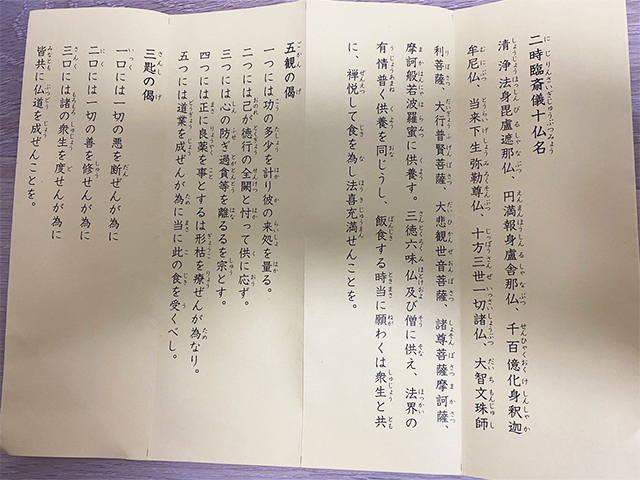 二時臨斎儀十仏名
清浄法身毘盧遮那仏、円満報身盧舎那仏、千百億化身釈迦
牟尼仏、当来下生弥勒尊仏、十方三世一切諸仏、大智文珠師
利菩薩、大行普賢菩薩、大悲観世音菩薩、諸尊菩薩摩訶薩、
摩訶般若波羅蜜に供養す。三徳六味仏及び僧に供え、法界の
有情普く供養を同じうし、飯食する時当に願わくは衆生と共
に、禅悦して食を為し法喜充満せんことを。
五観の偈
一つには功の多少を計り彼の来処を量る。
二つには己が徳行の全闕と忖って供に応ず。
三つには心の防ぎ過貪等を離るるを宗とす。
四つには正に良薬を事とするは形枯を療ぜんが為なり。
五つには道業を成ぜんが為に当に此の食を受くべし。
三匙の偈
一口には一切の悪を断ぜんが為に
二口には一切の善を修せんが為に
三口には諸の衆生を度せんが為に
皆共に仏道を成ぜんことを。